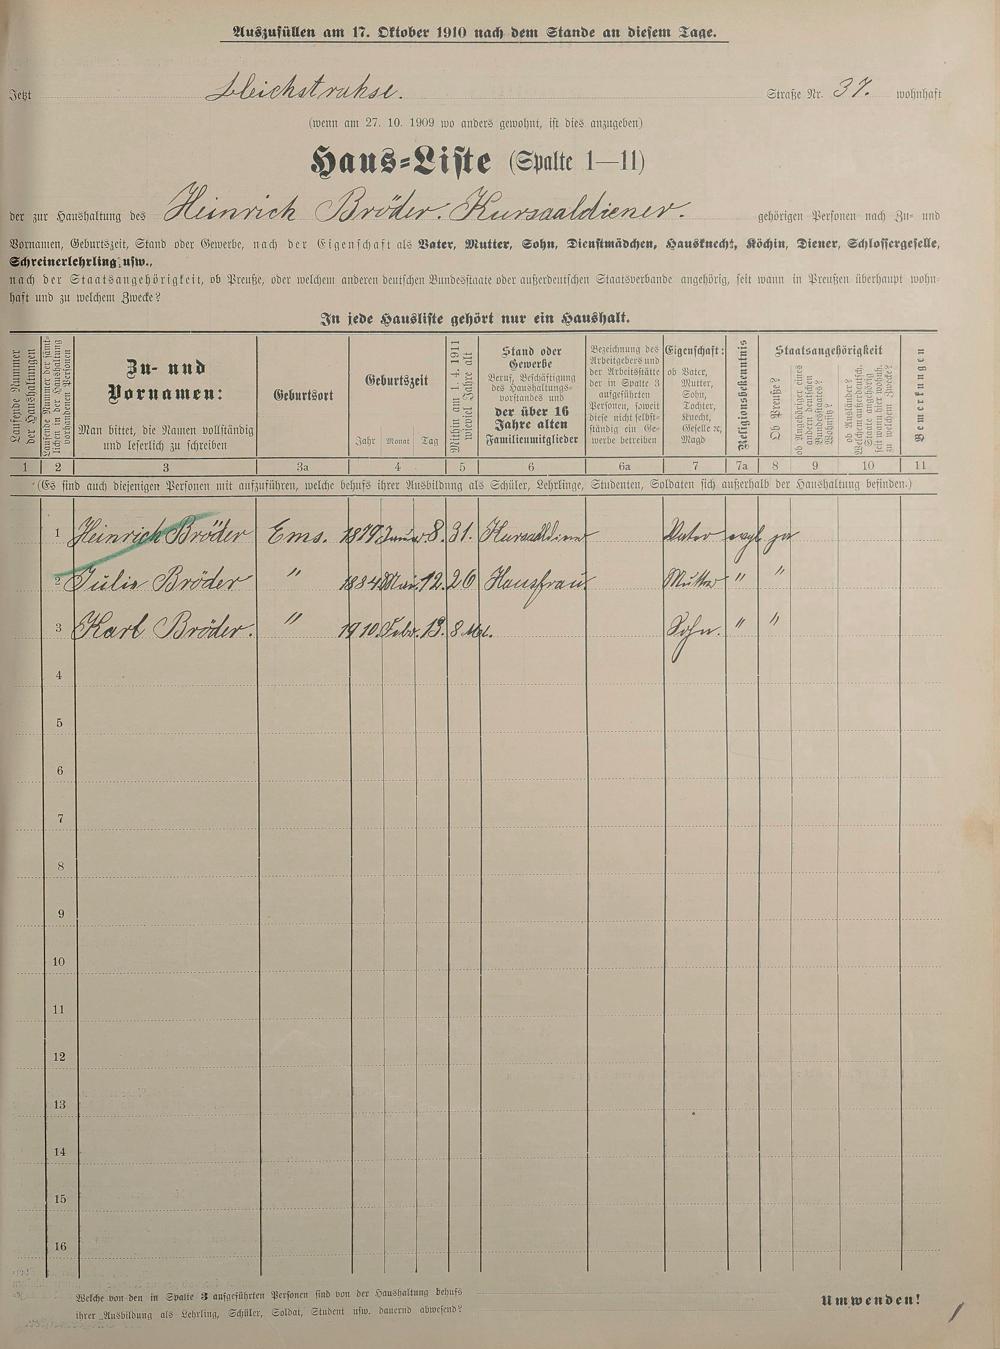 Auszufüllen am 17. Oktober 1910 nach dem Stande an diesem Tage.
Jetzt Bleichstrahse. Straße Nr. 37. wohnhaft
(wenn am 27. 10. 1909 wo anders gewohnt, ist dies anzugeben)
Haus-Liste (Spalte 1—11)
der zur Haushaltung des Heinrich Bröder. Kursaaldiener. gehörigen Personen nach Zu- und
Vornamen, Geburtszeit, Stand oder Gewerbe, nach der Eigenschaft als Vater, Mutter, Sohn, Dienstmädchen, Hausknecht, Köchin, Diener, Schlossergeselle,
Schreinerlehrling usw.,
nach der Staatsangehörigkeit, ob Preuße, oder welchem anderen deutschen Bundesstaate oder außerdeutschen Staatsverbande angehörig, seit wann in Preußen überhaupt wohn-
haft und zu welchem Zwecke?
In jede Hausliste gehört nur ein Haushalt.
Laufende Nummer
der Haushaltungen
Laufende Nummer der sämt-
lichen in der Haushaltung
vorhandenen Personen
Zu- und
Vornamen:
Man bittet, die Namen vollständig
und leserlich zu schreiben
Geburtsort
Geburtszeit
Jahr Monat Tag
Mithin am 1. 4. 1911
wieviel Jahre alt
Stand oder
Gewerbe
Beruf, Beschäftigung
des Haushaltungs-
vorstandes und
der über 16
Jahre alten
Familienmitglieder
Bezeichnung des
Arbeitgebers und
der Arbeitsstätte
der in Spalte 3
aufgeführten
Personen, soweit
diese nicht selbst-
ständig ein Ge-
werbe betreiben
Eigenschaft:
ob Vater,
Mutter,
Sohn,
Tochter,
Knecht,
Geselle ꝛc,
Magd
Religionsbekenntnis
Staatsangehörigkeit
Ob Preuße?
ob Angehöriger eines
andern deutschen
Bundesstaates?
Wohnsitz?
ob Ausländer?
Welchem außerdeutsch.
Staate angehörig
seit wann hier wohnh.
zu welchem Zwecke?
Bemerkungen
1 2 3 3a 4 5 6 6a 7 7a 8 9 10 11
(Es sind auch diejenigen Personen mit aufzuführen, welche behufs ihrer Ausbildung als Schüler, Lehrlinge, Studenten, Soldaten sich außerhalb der Haushaltung befinden.)
1 Heinrich Bröder Ems. 1879 8. 31. Kursaaldiener Vater evgl ja
2 Julie Bröder " 1884 Mai. 12. 26 Hausfrau. Mutter " "
3 Karl Bröder. " 1910. Febr. 13. 8 Mt. Sohn. " "
4
5
6
7
8
9
10
11
12
13
14
15
16
Welche von den in Spalte 3 aufgeführten Personen sind von der Haushaltung behufs
ihrer Ausbildung als Lehrling, Schüler, Soldat, Student usw. dauernd abwesend?
Umwenden!